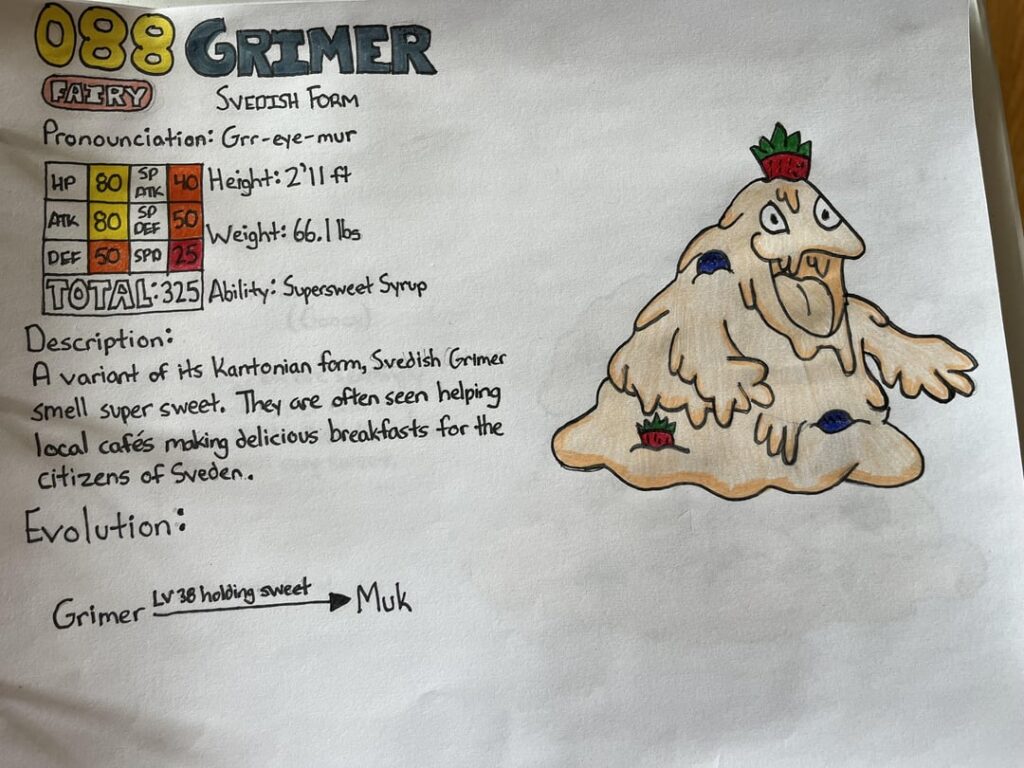 088 GRIMER
FAIRY
SVEDISH FORM
Pronounciation: Grr-eye-mur
HP 80 SP ATK 40
ATK 80 SP DEF 50
DEF 50 SPD 25
TOTAL: 325
Height: 2'11 ft
Weight: 66.1 lbs
Ability: Supersweet Syrup
Description:
A variant of its Kantonian form, Svedish Grimer
smell super sweet. They are often seen helping
local cafés making delicious breakfasts for the
citizens of Sveden.
Evolution:
Grimer LV 38 holding sweet Muk